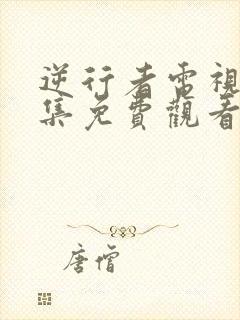 逆行者電視
集免費觀看
唐僧